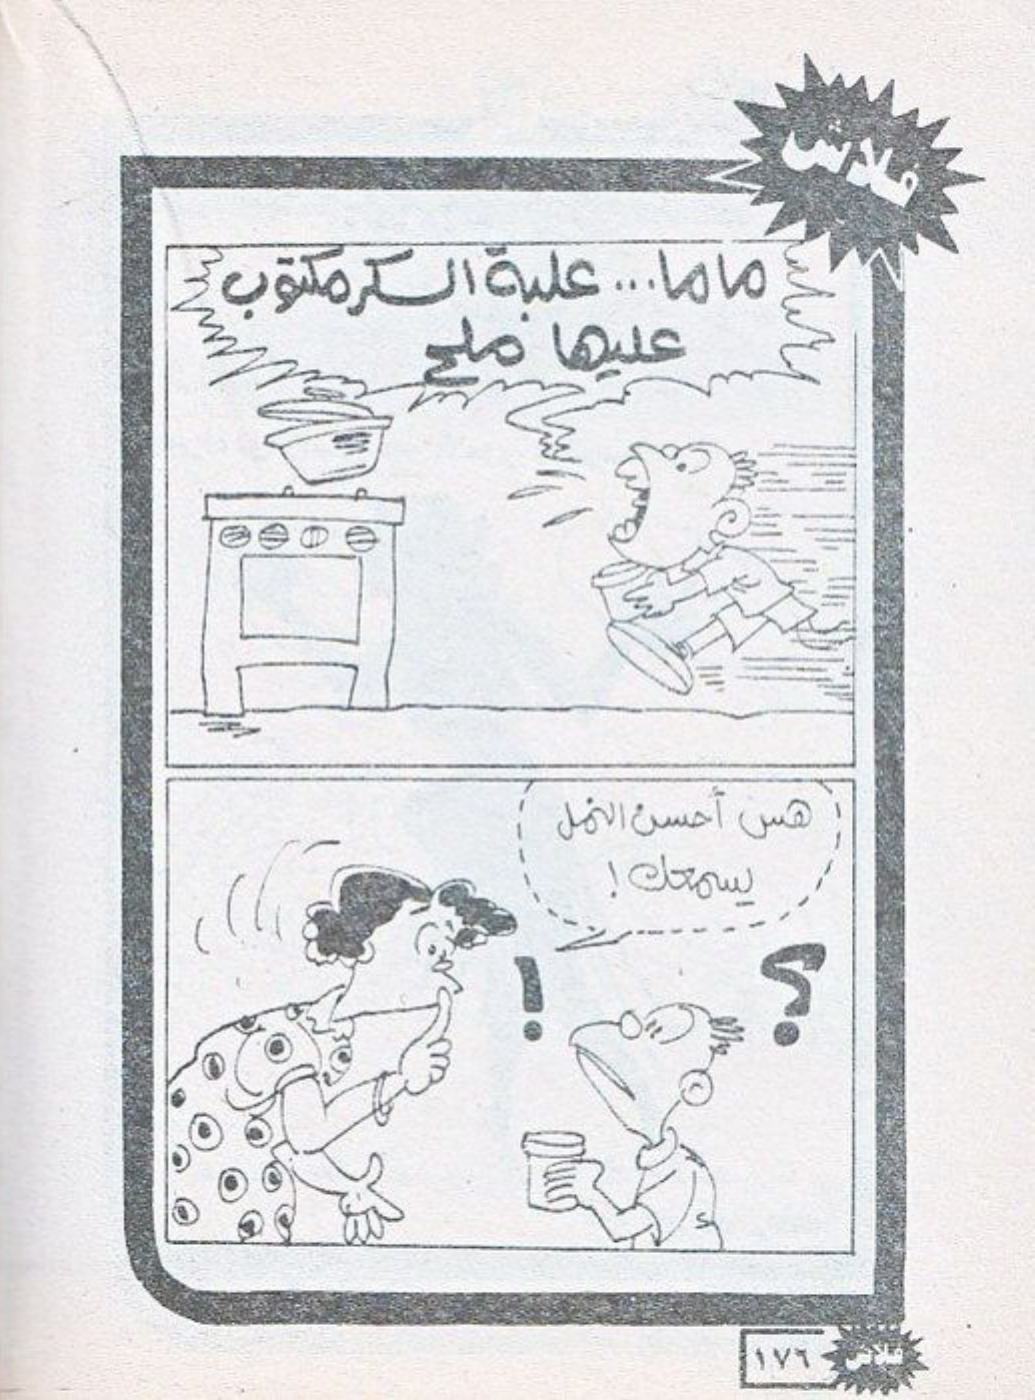 فلاش
ماما... علبة السكر مكتوب
عليها ملح
هس أحسن النمل
يسمعك!
!
؟
١٧٦
فلاش